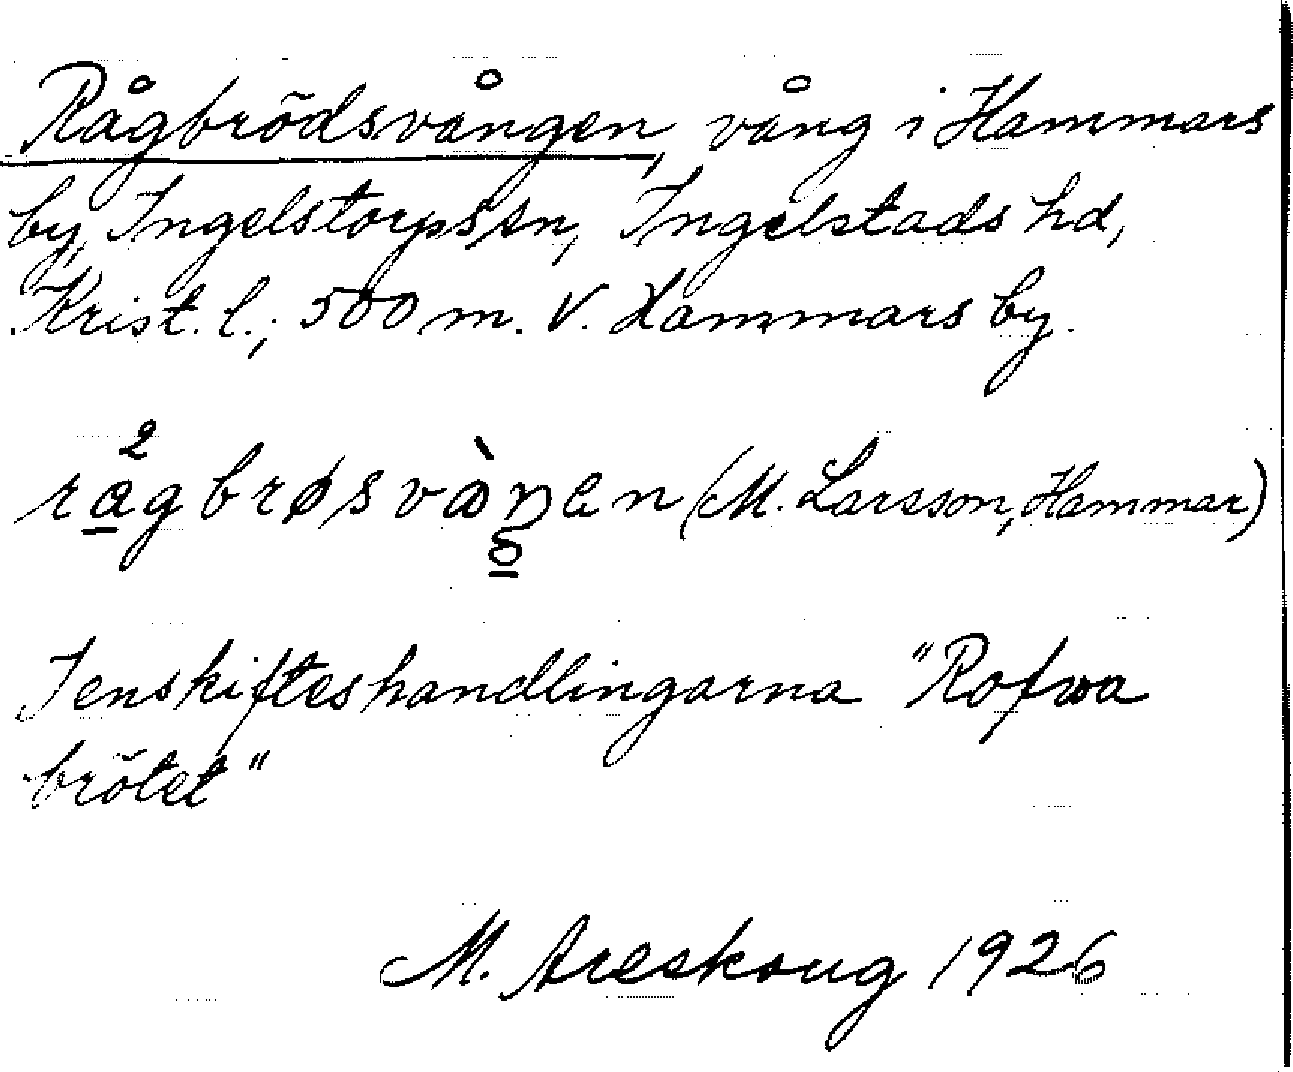 Rågbrödsvången, vång i Hammars
by, Ingelstorps sn, Ingelstads hd,
Krist. l.; 500 m. V. Hammars by.
rågbrøsvàŋen (M. Larsson, Hammar)
Ienskifteshandlingarna "Rofwa
brötet"
M. Areskoug 1926